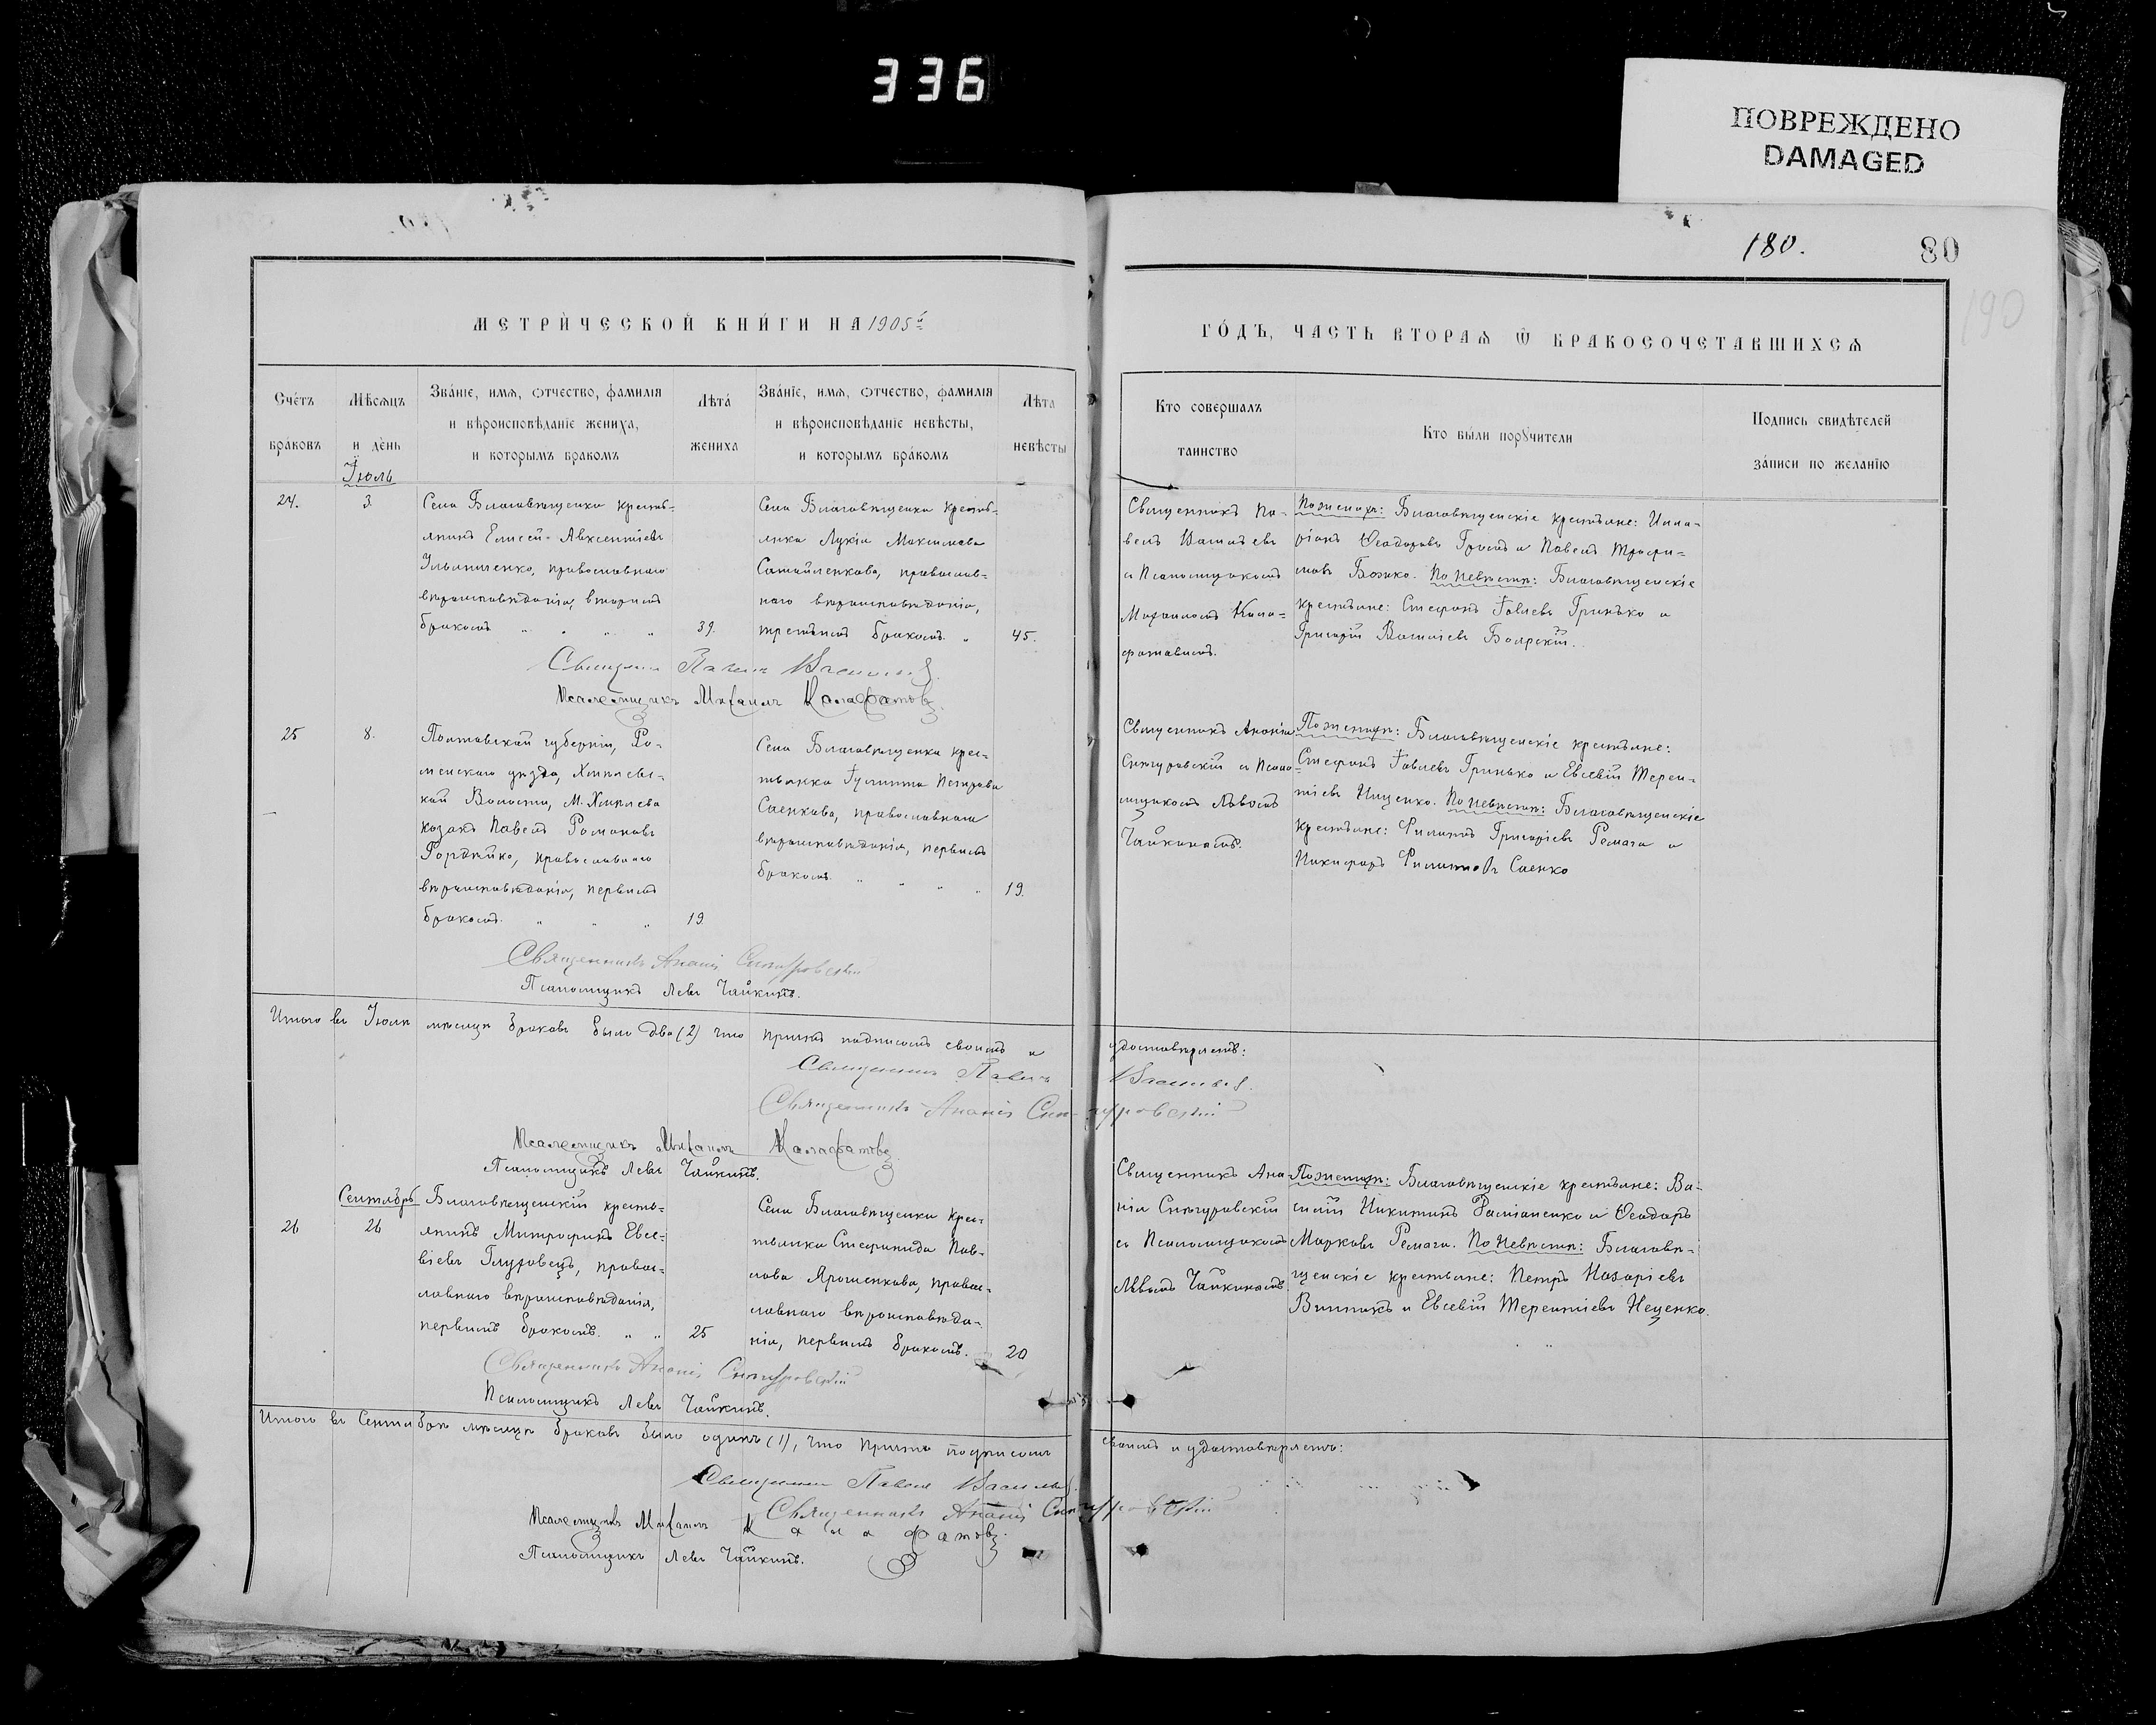 336
ПОВРЕЖДЕНО
DAMAGED
180.
80
190
МЕТРИ́ЧЕСКОЙ КНИ́ГИ НА 1905й
ГО́ДЪ, ЧАСТЬ ВТОРАѦ Ѿ БРАКОСОЧЕТАВШИХСѦ
Сче́тъ
бра́ковъ
Мѣ́сѧцъ
и де́нь
Зва́нїе, имѧ, ѻтчество, фамилїѧ
и вѣроисповѣданїе жениха,
и которымъ бракомъ
Лѣта́
жениха
Зва́нїе, имѧ, ѻтчество, фамилїѧ
и вѣроисповѣданїе невѣсты,
и которымъ бра́комъ
Лѣта
невѣсты
Кто совершалъ
таинство
Кто были порꙋчители
Подпись свидѣтелей
за́писи по желанїю
Іюль
24.
3
Села Благовѣщенки кресть-
янинъ Елисей Авксентіевъ
Ульяниченко, православнаго
вѣроисповѣданія, вторымъ
бракомъ " " " "
39.
Села Благовѣщенки кресть-
янка Лукія Максимова
Самойленкова, православ-
наго вѣроисповѣданія,
третьимъ бракомъ. "
45.
Священникъ Па-
велъ Васильевъ
съ Псаломщикомъ
Михаиломъ Кала-
фатовымъ.
По женихѣ: Благовѣщенскіе крестьяне: Илла-
ріонъ Ѳеодоровъ Гросъ и Павелъ Трофи-
мовъ Божко. По невѣстѣ: Благовѣщенскіе
крестьяне: Стефанъ Іовлевъ Гринько и
Григорій Васильевъ Боярскій.
Священникъ Павелъ Васильевъ.
Псаломщикъ Михаилъ Калафатовъ.
25
8.
Полтавской губерніи, Ро-
менскаго уѣзда, Хмѣлевс-
кой Волости, М. Хмѣлева
козакъ Павелъ Романовъ
Гордѣйко, православнаго
вѣроисповѣданія, первымъ
бракомъ. " " "
19
Села Благовѣщенки крес-
тьянка Іулитта Петрова
Саенкова, православнаго
вѣроисповѣданія, первымъ
бракомъ. " " " "
19.
Священникъ Ананія
Снѣгуровскій съ Псало-
мщикомъ Львомъ
Чайкинымъ.
По женихѣ: Благовѣщенскіе крестьяне:
Стефанъ Іовлевъ Гринько и Евсевій Терен-
тіевъ Нещенко. По невѣстѣ: Благовѣщенскіе
крестьяне: Филиппъ Григоріевъ Ремага и
Никифоръ Филипповъ Саенко
Священникъ Ананія Снѣгуровскій
Псаломщикъ Левъ Чайкинъ.
Итого въ Іюлѣ мѣсяцѣ браковъ было два (2) что причтъ подписомъ своимъ и удостовѣряетъ:
Священникъ Павелъ Васильевъ.
Священникъ Ананія Снѣгуровскій
Псаломщикъ Михаилъ Калафатовъ
Псаломщикъ Левъ Чайкинъ.
Сентябрь
26
26
Благовѣщенскій кресть-
янинъ Митрофанъ Евсе-
віевъ Глуховецъ, правос-
лавнаго вѣроисповѣданія,
первымъ бракомъ. " "
25
Села Благовѣщенки крес-
тьянка Стефанида Пав-
лова Ярошенкова, правос-
лавнаго вѣроисповѣда-
нія, первымъ бракомъ.
20
Священникъ Ана-
нія Снѣгуровскій
съ Псаломщикомъ
Львомъ Чайкинымъ
По женихѣ: Благовѣщенскіе крестьяне: Ва-
силій Никитинъ Даміаненко и Ѳеодоръ
Марковъ Ремага. По невѣстѣ: Благовѣ-
щенскіе крестьяне: Петръ Назаріевъ
Винникъ и Евсевій Терентіевъ Нещенко.
Священникъ Ананія Снѣгуровскій
Псаломщикъ Левъ Чайкинъ.
Итого въ Сентябрѣ мѣсяцѣ браковъ было одинъ (1), что причтъ подписомъ своимъ и удостовѣряетъ:
Священникъ Павелъ Васильевъ.
Священникъ Ананія Снѣгуровскій
Псаломщикъ Михаилъ Калафатовъ.
Псаломщикъ Левъ Чайкинъ.